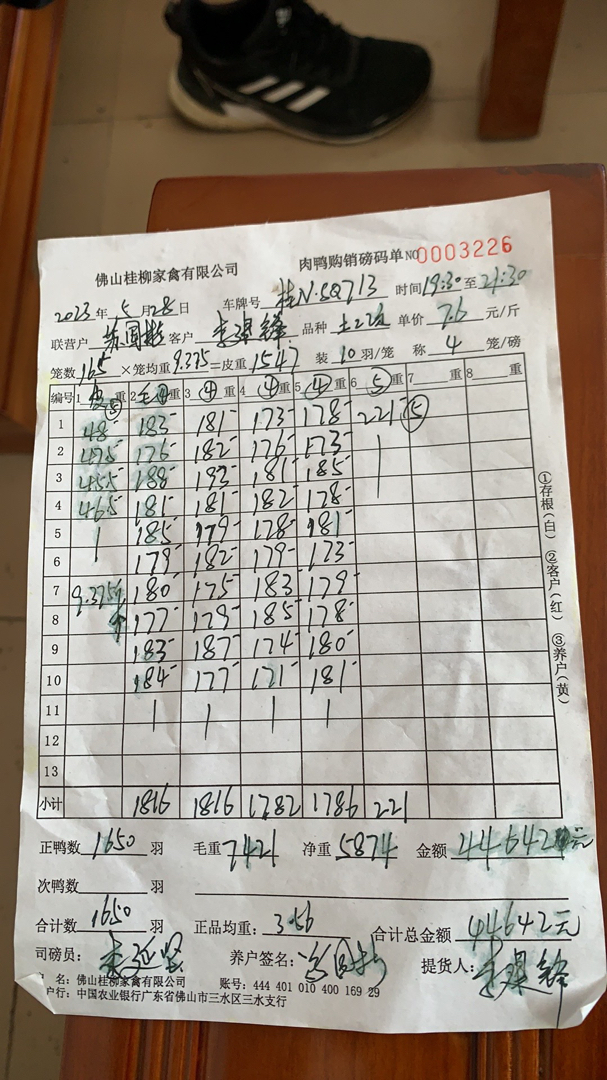 佛山桂柳家禽有限公司 肉鸭购销磅码单 NO0003226
2023年5月28日 车牌号 桂N·8Q713 时间19:30至21:30
联营户 客户 品种 单价 7.6 元/斤
笼数 165 ×笼均重9.375=皮重1547 装10羽/笼 称4笼/磅
编号 1 皮重⑤ 2 毛④重 3 ④重 4 ④重 5 ④重 6 ⑤重 7 重 8 重
1 48 183 181 173 178 221⑤
2 47.5 176 182 176 173
3 45.5 188 193 181 185
4 46.5 181 181 182 178
5 185 179 178 181
6 179 182 179 173
7 9.375 180 175 183 179
8 177 179 185 178
9 183 187 174 180
10 184 177 171 181
11
12
13
小计 1816 1816 1782 1786 221
正鸭数 1650 羽 毛重 7421 净重 5874 金额 44642元
次鸭数 羽
合计数 1650 羽 正品均重: 3.56 合计总金额 44642元
司磅员: 养户签名: 提货人:
名: 佛山桂柳家禽有限公司 账号: 444 401 010 400 169 29
户行: 中国农业银行广东省佛山市三水区三水支行
①存根(白) ②客户(红) ③养户(黄)